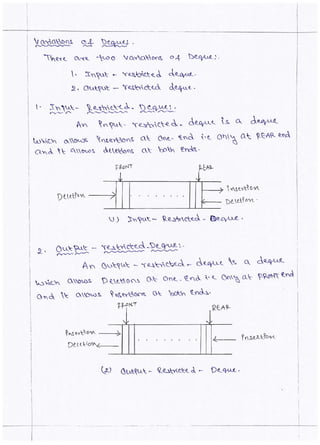 Variations of Deque:.
There are two Variations of Deque:.
1. Input - restricted deque.
2. Output - restricted deque.
1. Input- Restricted. Deque:.
An Input- restricted- deque is a deque
which allows insertions at one- end i.e only at REAR end
and it allows deletions at both ends.
FRONT REAR
Deletion Insertion
Deletion.
(1) Input- Restricted- Deque.
2. Output - restricted.Deque:.
An Output - restricted- deque is a deque
which allows Deletions at one- end i.e only at FRONT end
and it allows insertions at both ends.
FRONT REAR
Insertion Insertion
Deletion
(2) Output - Restricted - Deque.